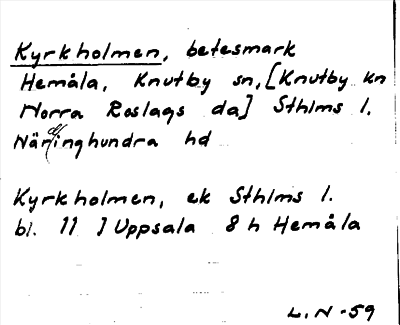 Kyrkholmen, betesmark
Hemåla, Knutby sn, [Knutby kn
Norra Roslags da] Sthlms l.
Närdinghundra hd
Kyrkholmen, ek Sthlms l.
bl. 11 J Uppsala 8 h Hemåla
L. N -59